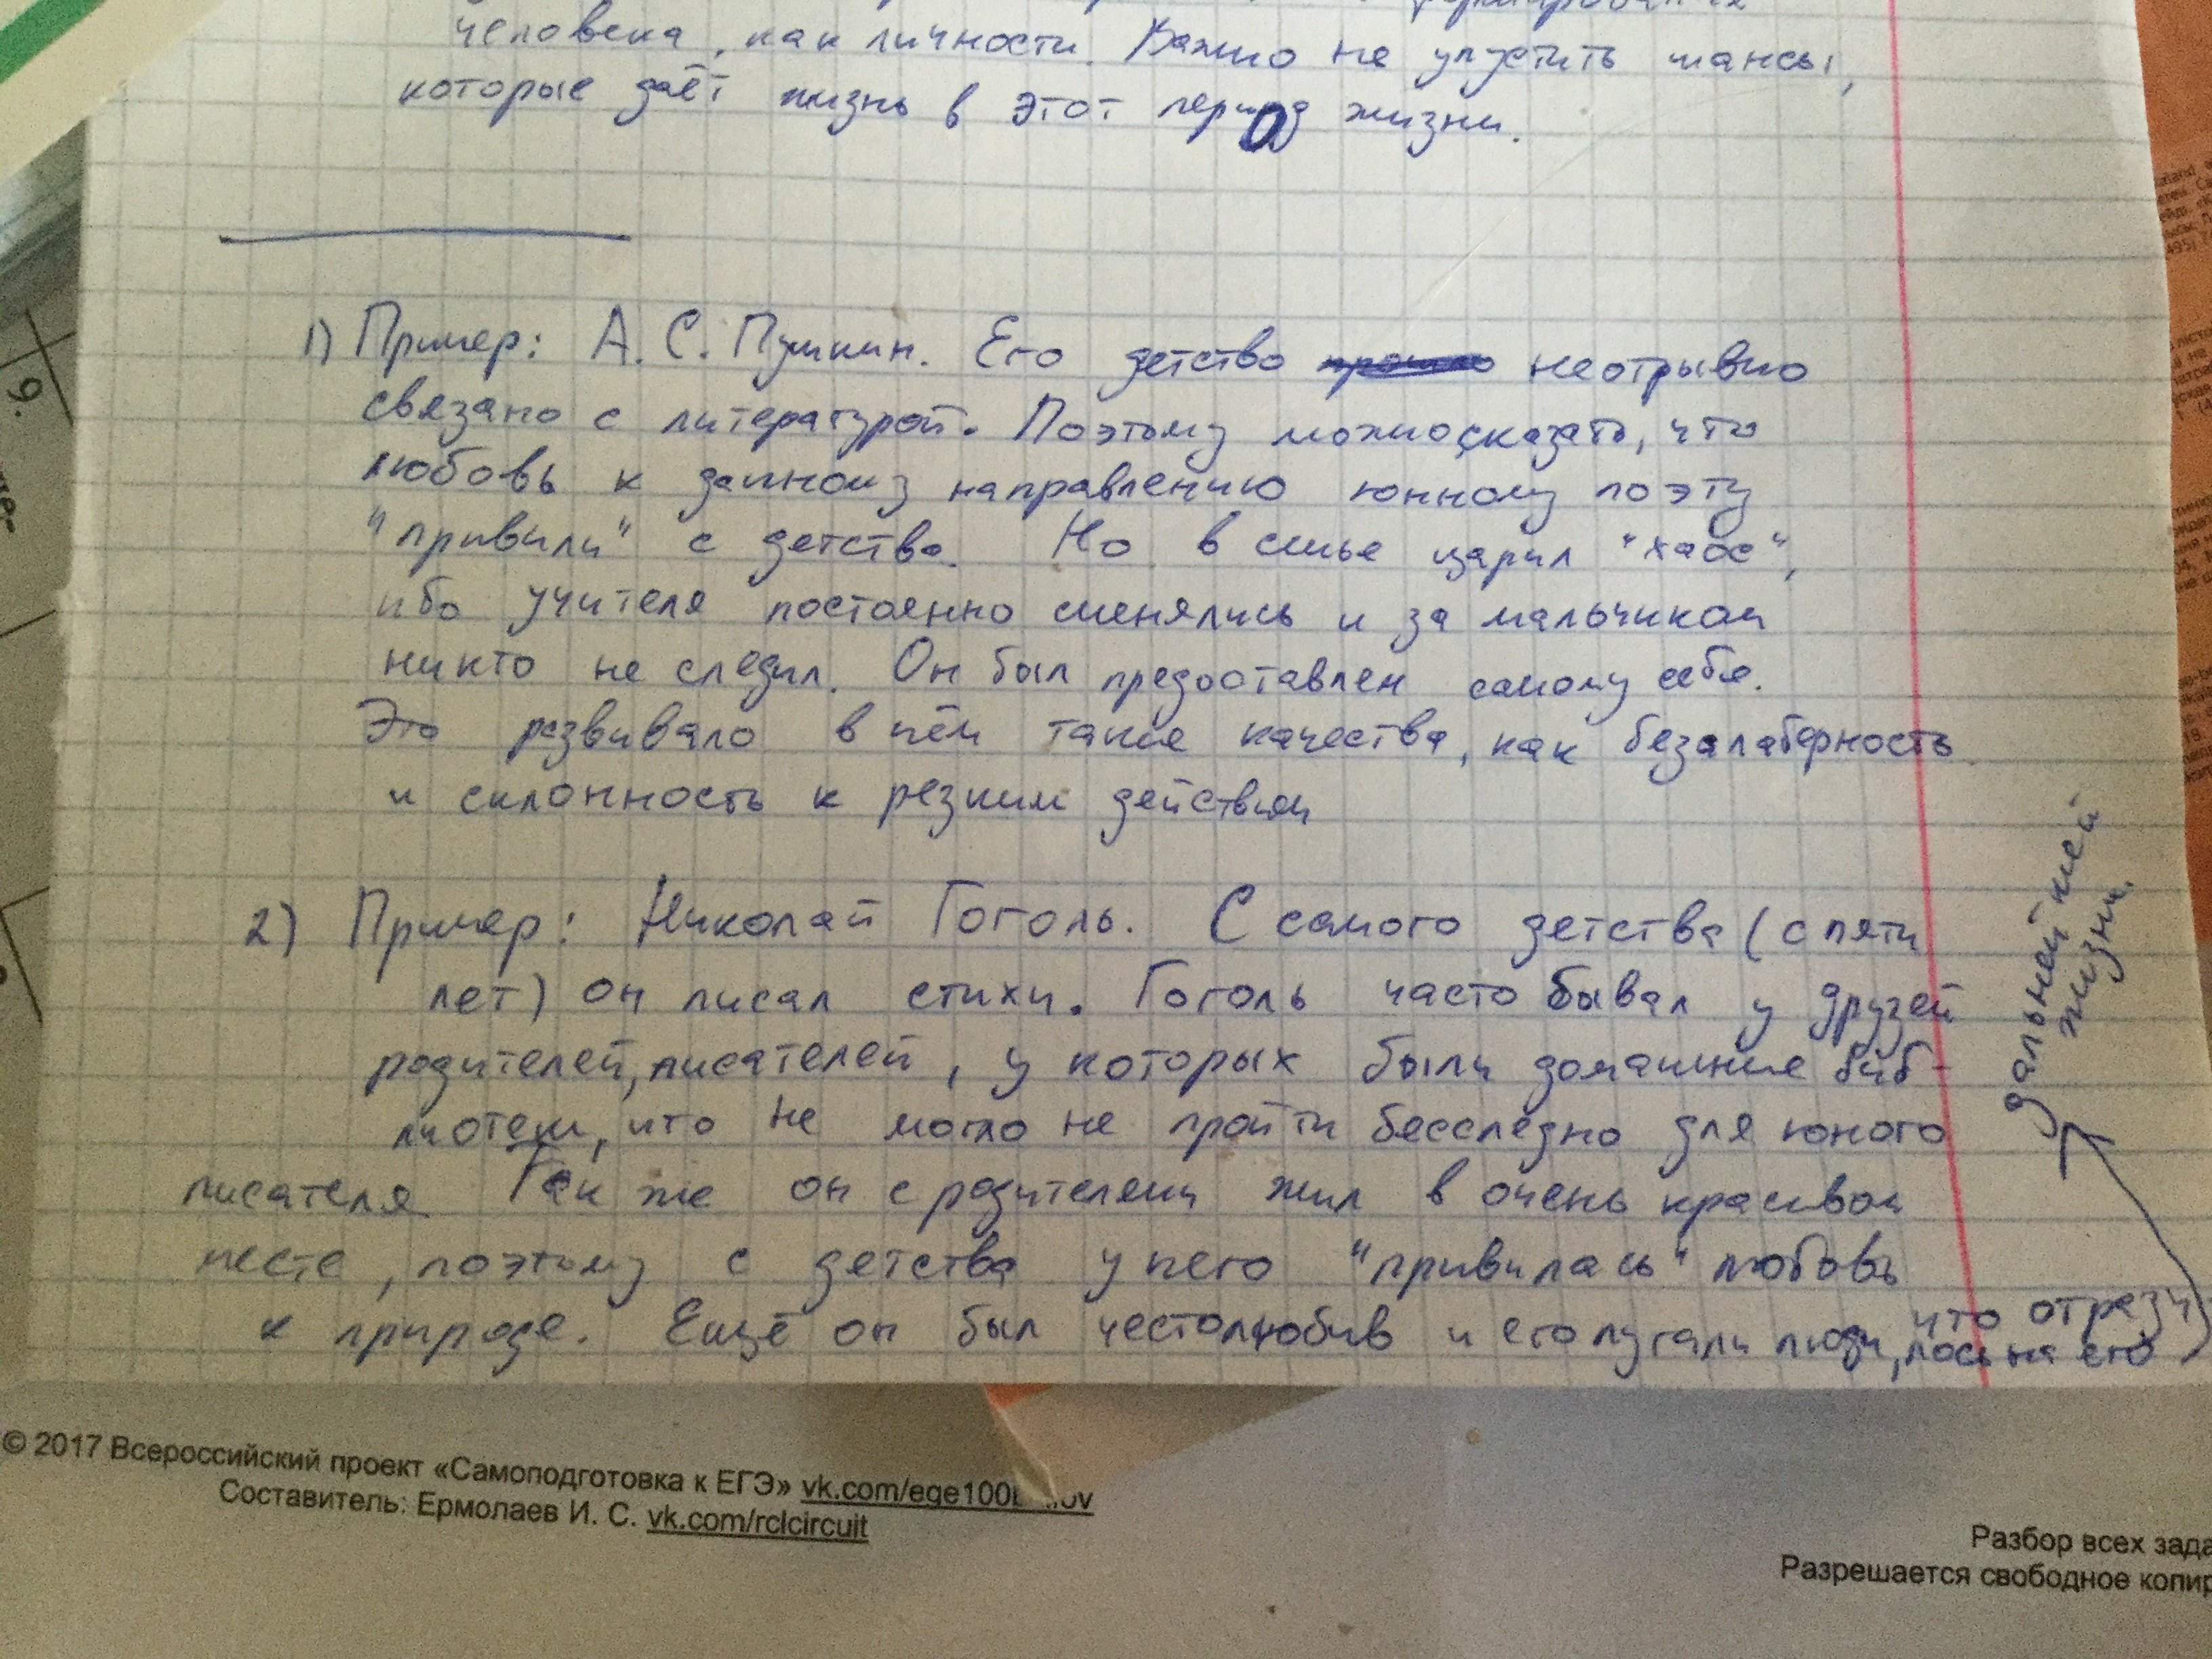 человека, как личности. Важно не упустить шансы,
которые даёт жизнь в этот период жизни.
1) Пример: А. С. Пушкин. Его детство неотрывно
связано с литературой. Поэтому можно сказать, что
любовь к данному направлению юнному поэту
"привили" с детства. Но в семье царил "хаос",
ибо учителя постоянно сменялись и за мальчиком
никто не следил. Он был предоставлен самому себе.
Это развивало в нём такие качества, как безалаберность
и склонность к резким действиям
2) Пример: Николай Гоголь. С самого детства (с пяти
лет) он писал стихи. Гоголь часто бывал у друзей
родителей, писателей, у которых были домашние биб-
лиотеки, что не могло не пройти бесследно для юного
писателя Так же он с родителями жил в очень красивом
месте, поэтому с детства у него "привилась" любовь
к природе. Ещё он был честолюбив и его пугали люди, что отрази
лось на его
дальнейшей
жизни.
9.
© 2017 Всероссийский проект «Самоподготовка к ЕГЭ»
Составитель: Ермолаев И. С. vk.com/rclcircuit
Разбор всех зада
Разрешается свободное копир